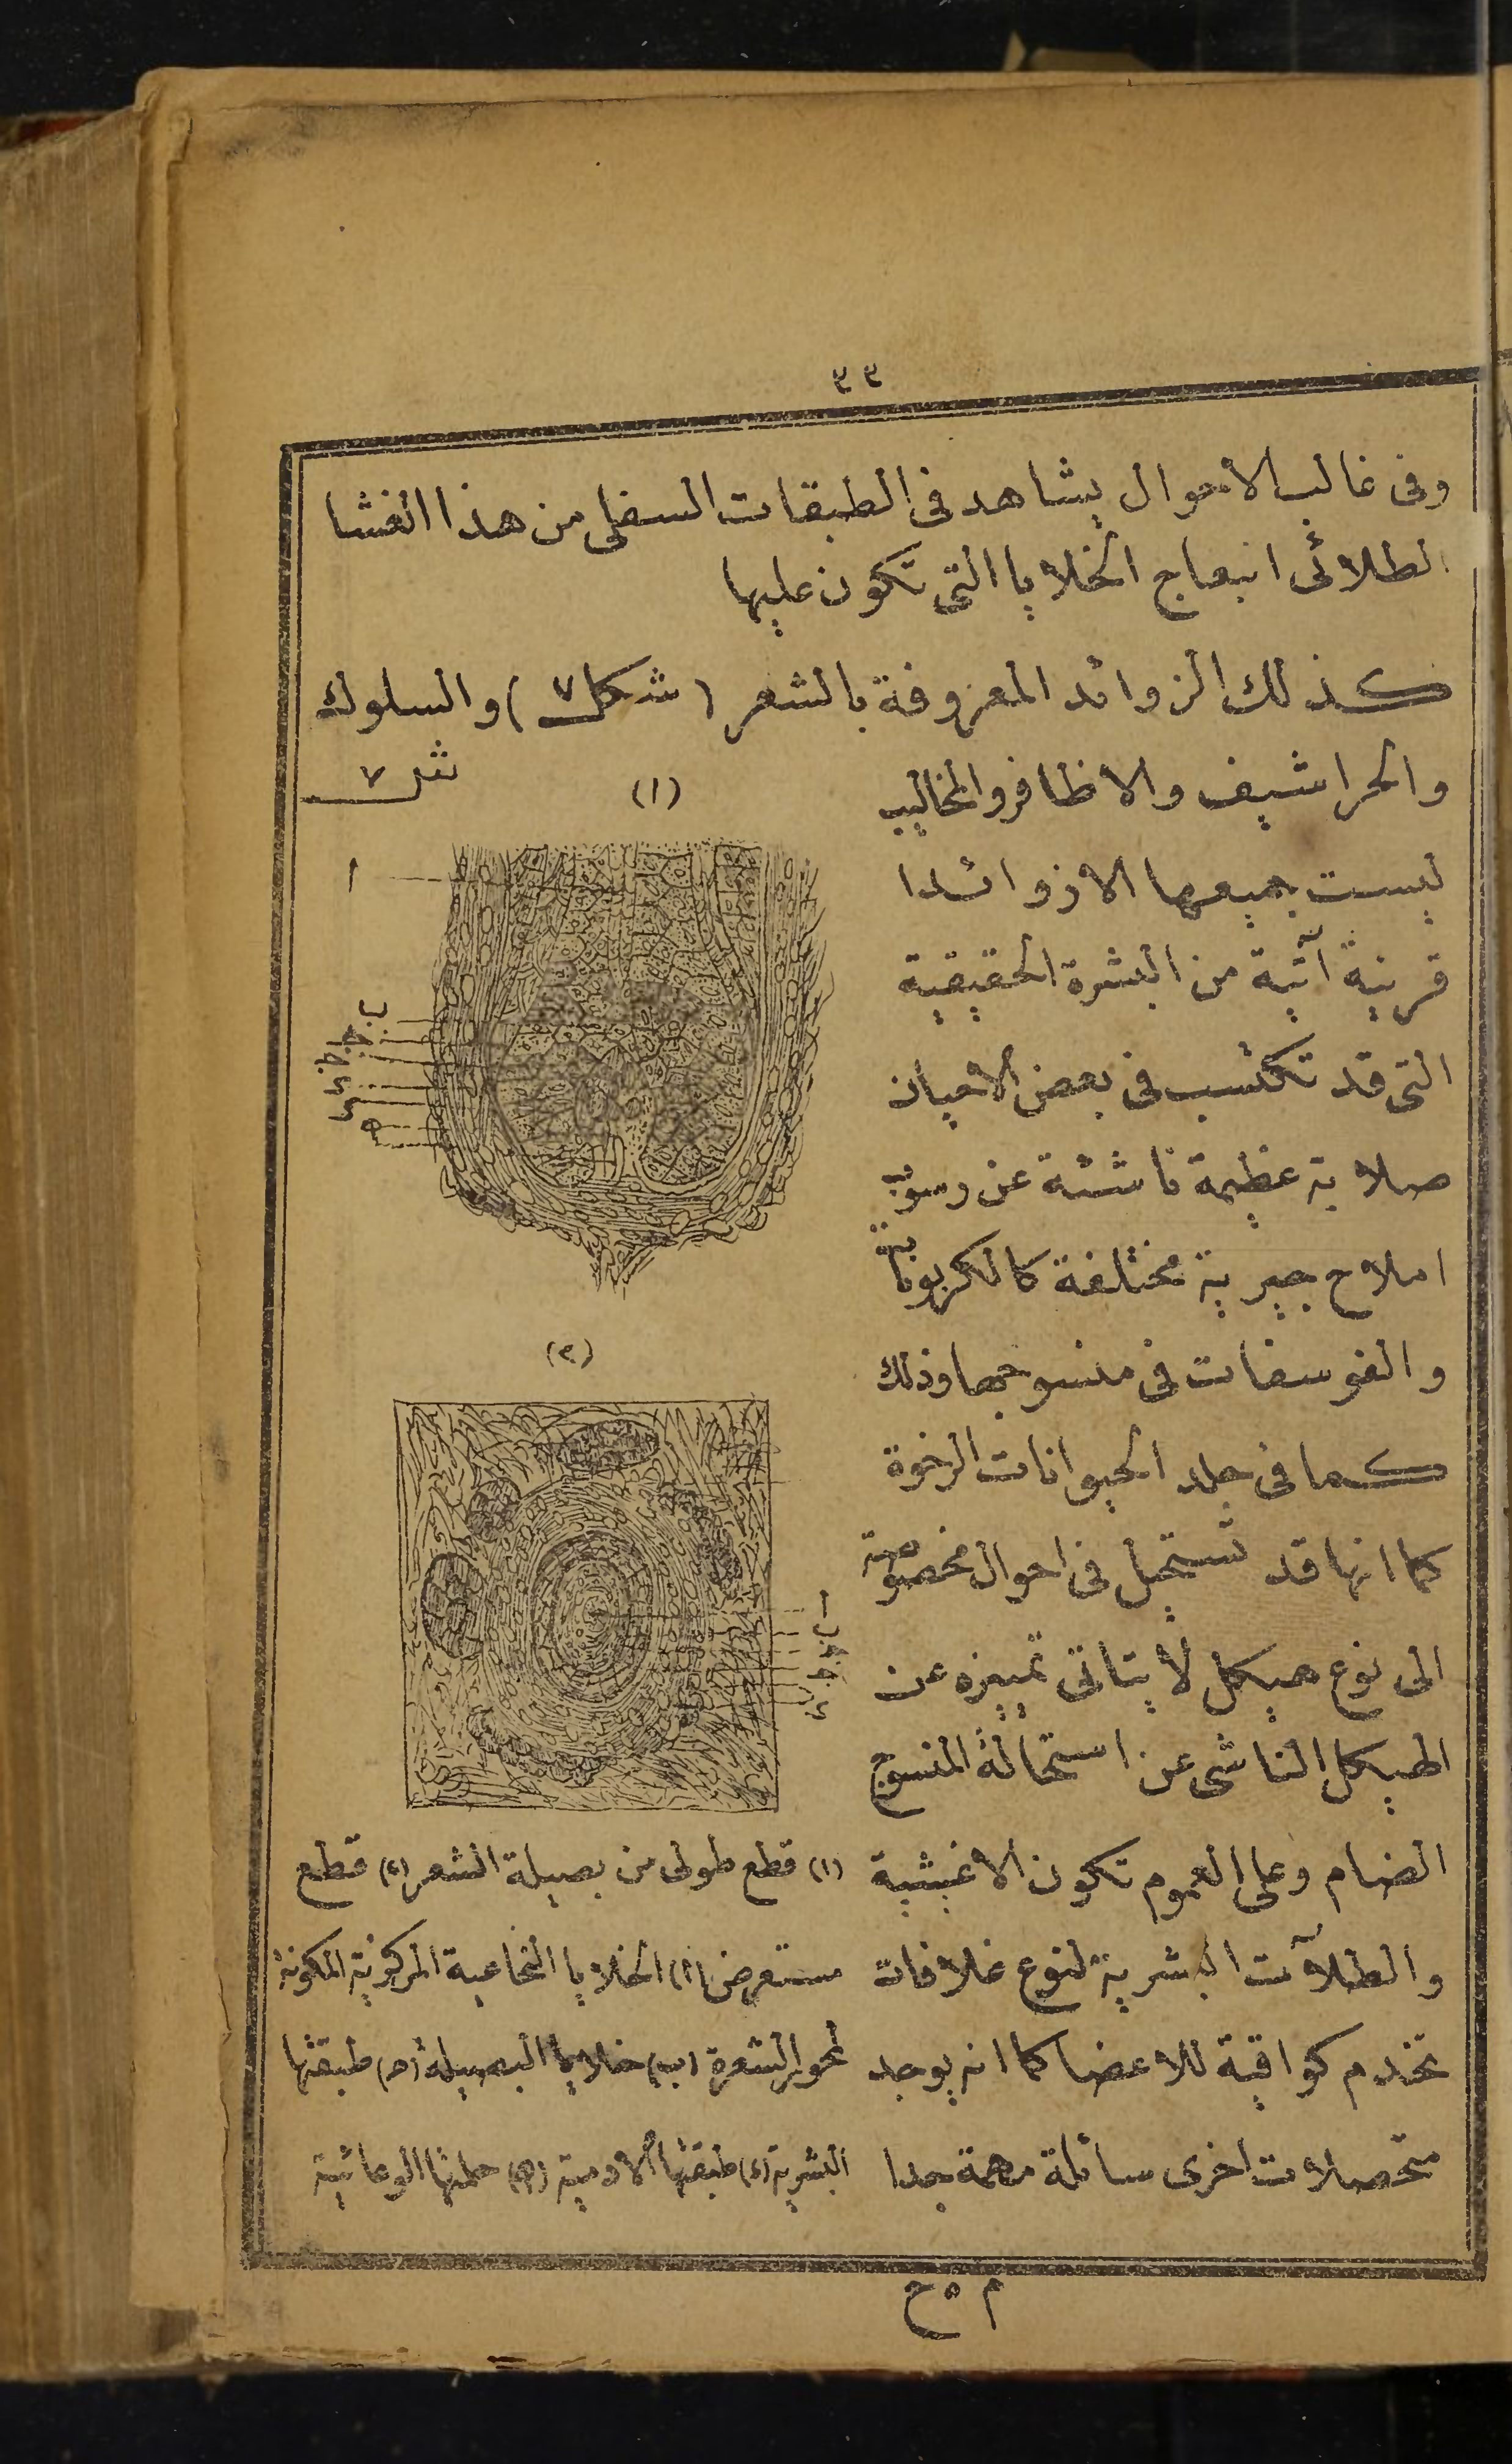 ٣٣
وفى غالب الاحوال يشاهد فى الطبقات السفلى من هذا الغشا
الطلائى انبعاج الخلايا التى تكون عليها
كذلك الزوائد المعروفة بالشعر (شكل ٧) والسلوك
والحراشيف والاظافر والمخاليب
ليست جميعها الا زوائدا
قرنية آتية من البشرة الحقيقية
التى قد تكتسب فى بعض الاحيان
صلابة عظيمة ناشئة عن رسوب
املاح جيرية مختلفة كالكربوناتية
والفوسفات فى منسوجها وذلك
كما فى جلد الحيوانات الرخوة
كما انها قد تستحيل فى احوال مخصوصة
الى نوع هيكل لا يتاتى تمييزه عن
الهيكل الناشى عن استحالة المنسوج
الضام وعلى العموم تكون الاغيشية
والطلآت البشرية لنوع غلافات
تخدم كواقية للاعضا كما انه يوجد
متحصلات اخرى سائلة مهمة جدا
شكل ٧
(١)
ا
ب
ج
ج
د
د
ه
(٢)
ا
ب
ج
ج
د
(١) قطع طولى من بصيلة الشعر (٢) قطع
مستعرض (ا) الخلايا النخاعية المركزية المكونة
لمحور الشعرة (ب) خلايا البصيلة (ج) طبقتها
البشرية (د) طبقتها الادمية (ه) حلمتها الوعائية
م ٥ ح